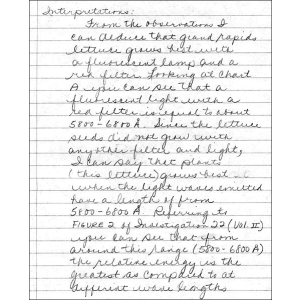 Interpretations:
From the observation I
can deduce that grand rapids
lettuce grows best with
a fluorescent lamp and a
red filter. Looking at Chart
A you can see that a
fluorescent light with a
red filter is equal to about
5800-6800 A. Since the lettuce
seeds did not grow with
any other filter and light,
I can say that plants
(this lettuce) grows best
when the light waves emitted
have a length of from
5800-6800 A. Refering to
FIGURE 2 of Investigation 22 (VOL. II)
you can see that from
around this range (5800-6800 A)
the relative energy is the
greatest as compared to at
different wave lengths